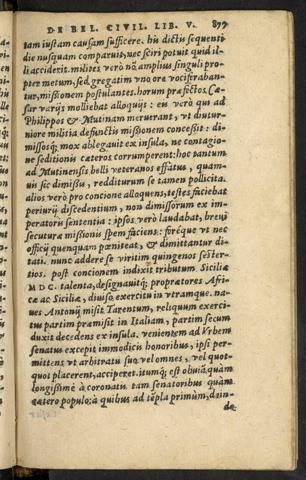 DE BEL. CIVIL. LIB. V. 877
tam iustam causam sufficere. his dictis sequenti
die nusquam comparuit, nec sciri potuit quid il-
li acciderit. milites verò nõ amplius singuli pro-
pter metum, sed gregatim vno ore vociferaban-
tur, missionem postulantes. horum præfectos Cæ-
sar varijs molliebat alloquijs: eis verò qui ad
Philippos & Mutinam meruerant, vt diutur-
niore militia defunctis missionem concessit: di-
missosq́; mox ablegauit ex insula, ne contagio-
ne seditionis cæteros corrumperent: hoc tantum
ad Mutinensis belli veteranos effatus, quam-
uis sic dimissis, redditurum se tamen pollicita.
alios verò pro concione alloquens, testes faciebat
periurij discedentium, non dimissorum ex im-
peratoris sententia: ipsos verò laudabat, breui
secutura missionis spem faciens: foréque vt nec
officij quenquam pœniteat, & dimittantur di-
tati. nunc addere se viritim quingenos sester-
tios. post concionem indixit tributum Siciliæ
M D C. talenta, designauitq́; proprætores Afri-
cæ ac Siciliæ, diuiso exercitu in vtramque. na-
ues Antonij misit Tarentum, reliquum exerci-
tus partim præmisit in Italiam, partim secum
duxit decedens ex insula. venientem ad Vrbem
senatus excepit immodicis honoribus, ipsi per-
mittens vt arbitratu suo vel omnes, vel quot-
quot placerent, acciperet. itumq́; est obuiã quàm
longissimè à coronatis tam senatoribus quàm
cætero populo: à quibus ad tẽpla primùm, dein-
de